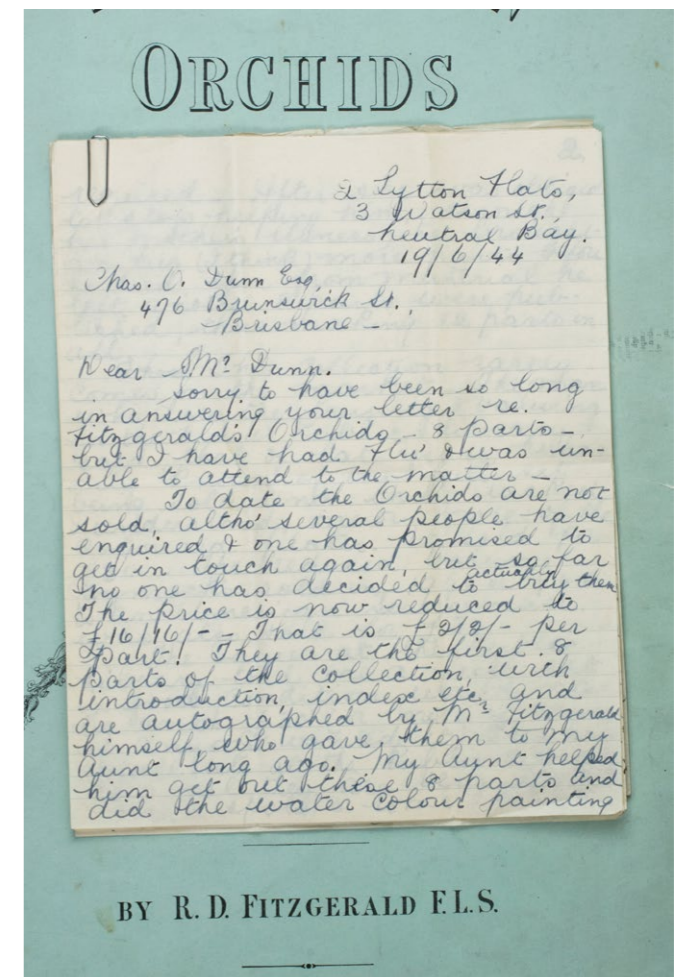 ORCHIDS
2.
2 Lytton Flats,
3 Watson St.,
Neutral Bay.
19/6/44
Chas. O. Dunn Esq.,
476 Brunswick St.,
Brisbane –
Dear Mr Dunn.
Sorry to have been so long
in answering your letter re.
Fitzgerald's Orchids – 8 parts –
but I have had 'flu' & was un-
able to attend to the matter –
To date the Orchids are not
sold, altho' several people have
enquired & one has promised to
get in touch again, but so far
no one has decided to actually buy them
The price is now reduced to
£16/16/- – That is £2/2/- per
part. They are the first 8
parts of the collection, with
introduction, index etc, and
are autographed by Mr Fitzgerald
himself, who gave them to my
Aunt long ago. My Aunt helped
him get out these 8 parts and
did the water colour painting
BY R. D. FITZGERALD F.L.S.